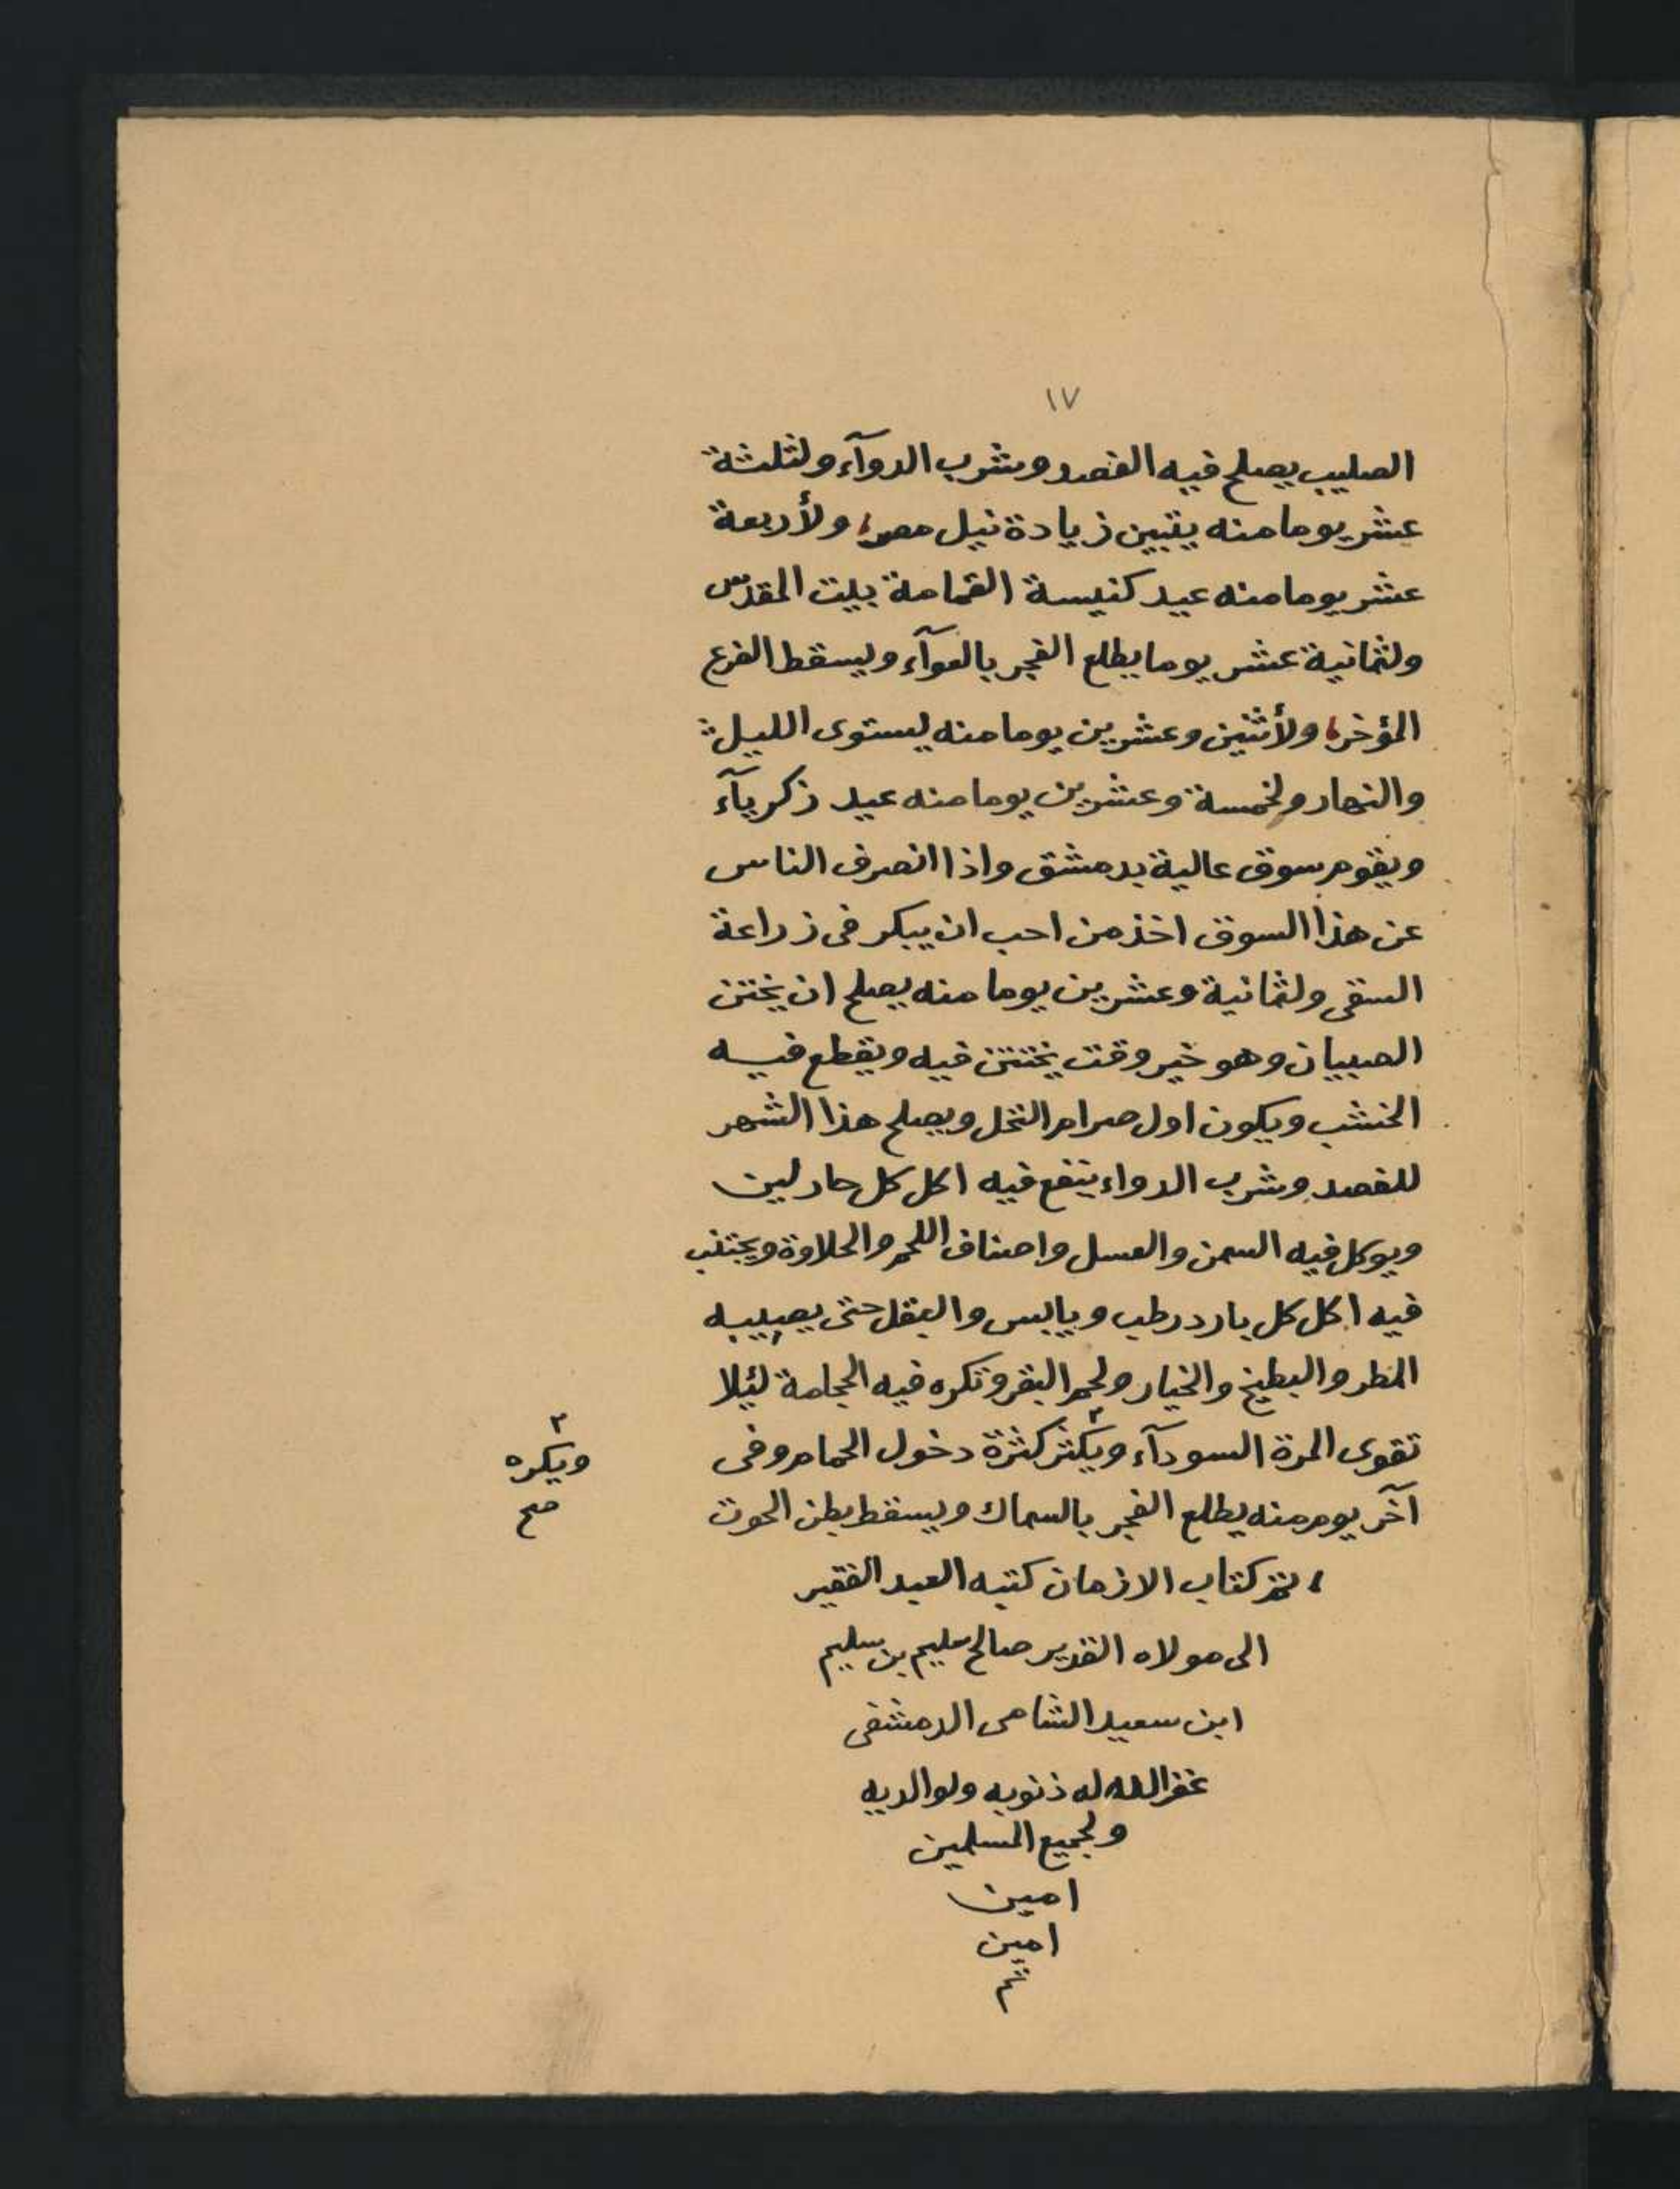 ١٧
الصليب يصلح فيه الفصد وشرب الدوآء ولثلثة
عشر يوما منه يتبين زيادة نيل مصر، ولأربعة
عشر يوما منه عيد كنيسة القمامة ببيت المقدس
ولثمانية عشر يوما يطلع الفجر بالعوآء ويسقط الفرع
المؤخر، ولأثنين وعشرين يوما منه يستوى الليل
والنهار ولخمسة وعشرين يوما منه عيد زكريآء
ويقوم سوق عالية بدمشق واذا انصرف الناس
عن هذا السوق اخذ من احب ان يبكر فى زراعة
السقى ولثمانية وعشرين يوما منه يصلح ان يختتن
الصبيان وهو خير وقت يختتن فيه ويقطع فيه
الخشب ويكون اول صرام النخل ويصلح هذا الشهر
للفصد وشرب الدواء ينفع فيه اكل كل حار لين
ويوكل فيه السمن والعسل واصناف اللحم والحلاوة ويجتنب
فيه اكل كل بارد رطب ويابس والبقل حتى يصيبه
المطر والبطيخ والخيار ولحم البقر وتكره فيه الحجامة لئلا
تقوى المرة السودآء ويكثر٣ كثرة دخول الحمام وفى
٣ ويكره
صح
آخر يوم منه يطلع الفجر بالسماك ويسقط بطن الحوت
، تم كتاب الازمان كتبه العبد الفقير
الى مولاه القدير صالح سليم بن سليم
ابن سعيد الشامى الدمشقى
غفر الله له ذنوبه ولوالديه
ولجميع المسلمين
امين
امين